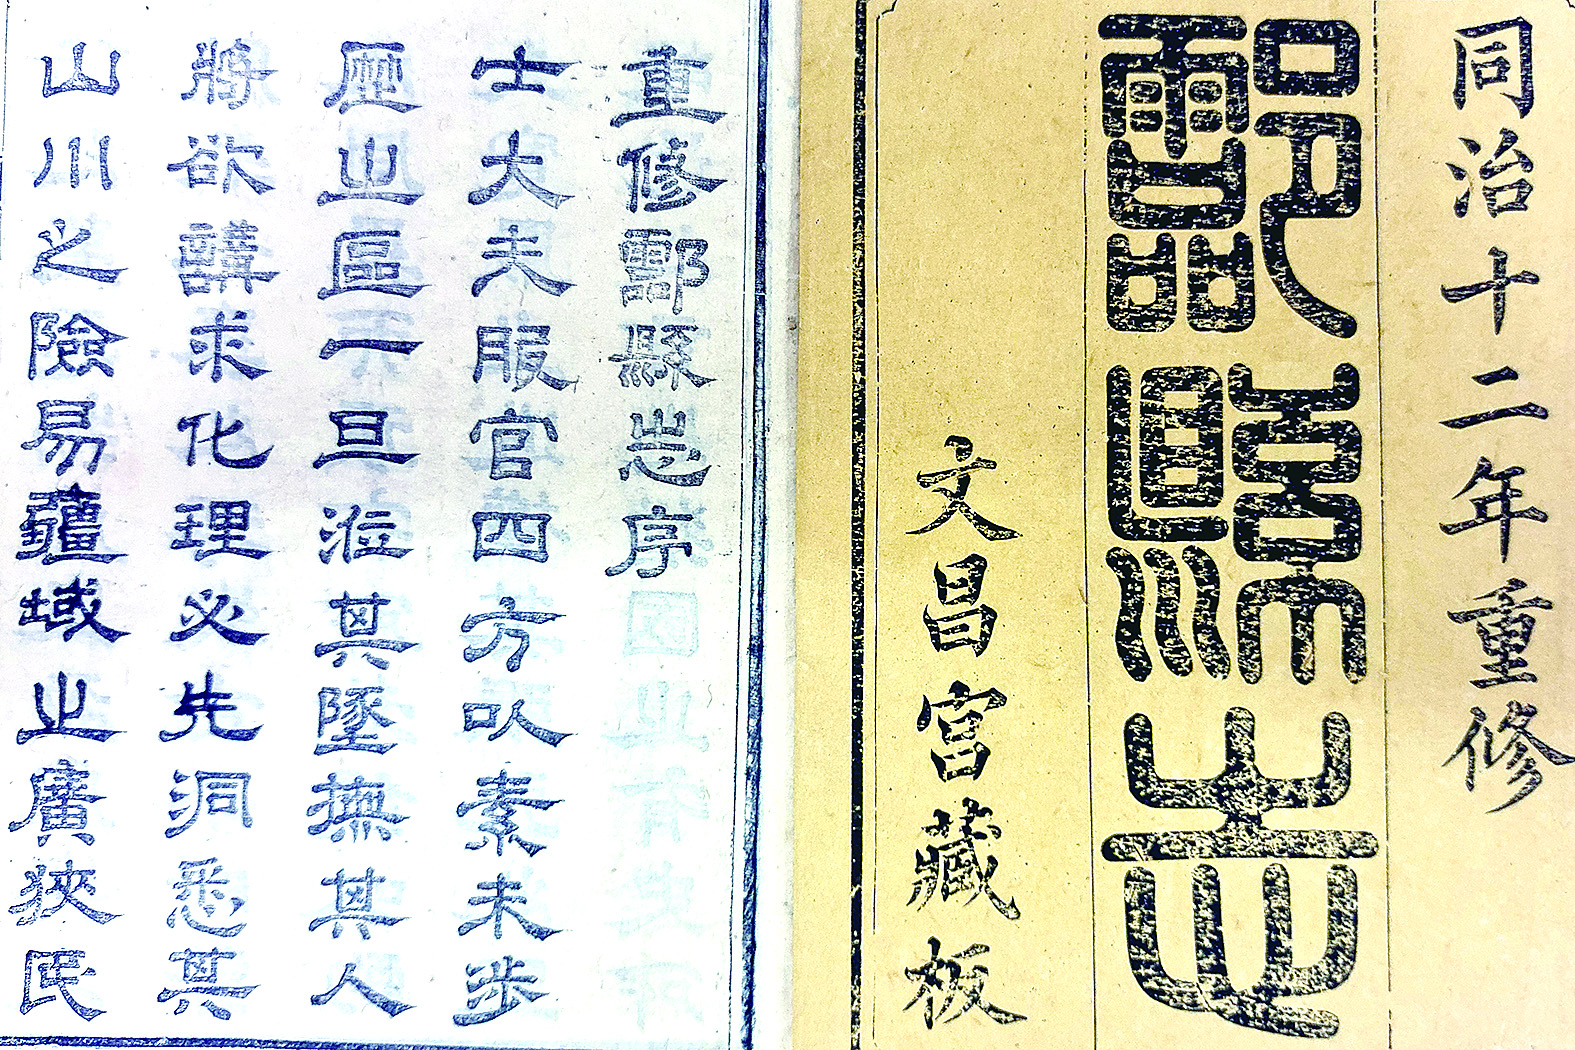 同治十二年重修
酃縣志
文昌宮藏板
重修酃縣志序
士大夫服官四方以素未涉
歷之區一旦涖其墬撫其人
將欲講求化理必先洞悉其
山川之險易疆域之廣狹民